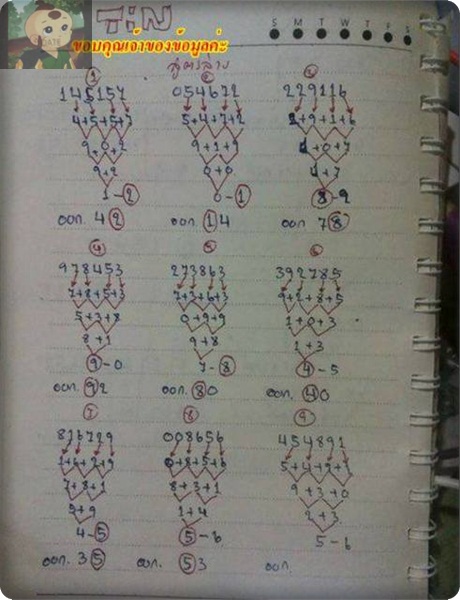 S M T W T F S
ขอบคุณเจ้าของข้อมูลค่ะ
สูตรล่าง
1
145157
4+5+5+7
9+0+2
9+2
1-2
ออก. 42
2
054672
5+4+7+2
9+1+9
0+0
0-1
ออก. 14
3
229116
2+9+1+6
1+0+7
1+7
8-9
ออก. 78
4
978453
7+8+5+3
5+3+8
8+1
9-0
ออก. 92
5
273863
7+3+6+3
0+9+9
9+8
7-8
ออก. 80
6
392785
9+2+8+5
1+0+3
1+3
4-5
ออก. 40
7
816729
1+6+2+9
7+8+1
5+9
4-5
ออก. 35
8
008656
0+8+5+6
8+3+1
1+4
5-6
ออก. 53
9
454891
5+4+9+1
9+3+0
2+3
5-6
ออก.